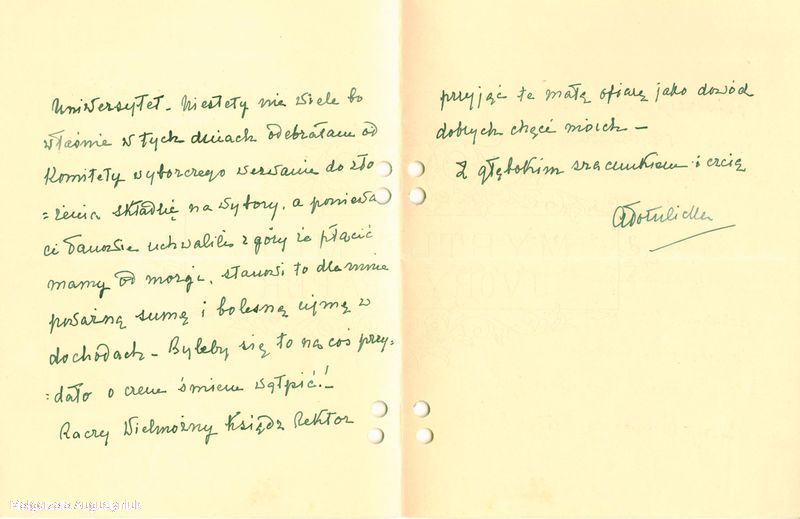 Uniwersytet – Niestety nie wiele bo
właśnie w tych dniach odebrałam od
Komitety wyborczego wezwanie do zło
=żenia składkę na wybory, a poniewa
ci Panowie uchwalili z góry że płacić
mamy od morgi, stanowi to dla mnie
poważną sumę i bolesną ujmę w
dochodach – Byleby się to na coś przy=
=dało o czem śmiem wątpić!–
Raczy Wielmożny Ksiądz Rektor
przyjąć te małą ofiarę jako dowód
dobrych chęci moich –
Z głębokim szacunkiem i czcią
Małgorzata Augustyniuk